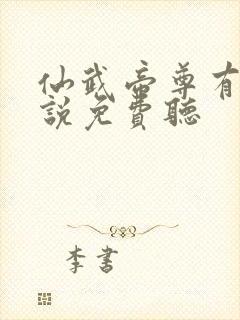 仙武帝尊有
說免費聽
李書